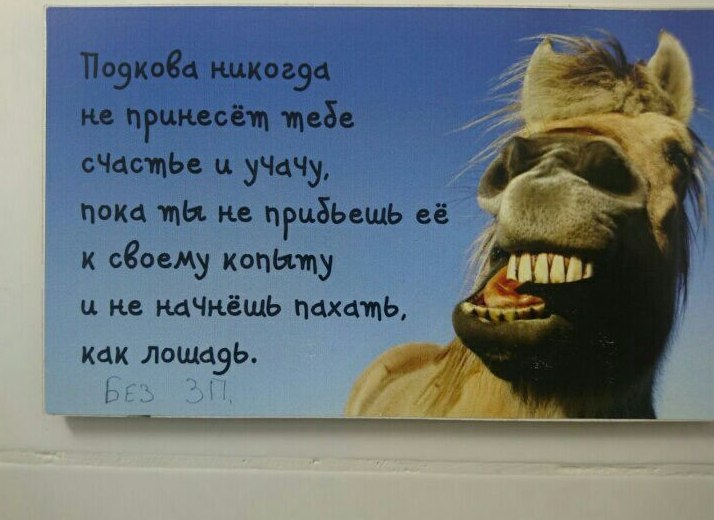 Подкова никогда
не принесёт тебе
счастье и учачу,
пока ты не прибьешь её
к своему копыту
и не начнёшь пахать,
как лошадь.
БЕЗ ЗП.